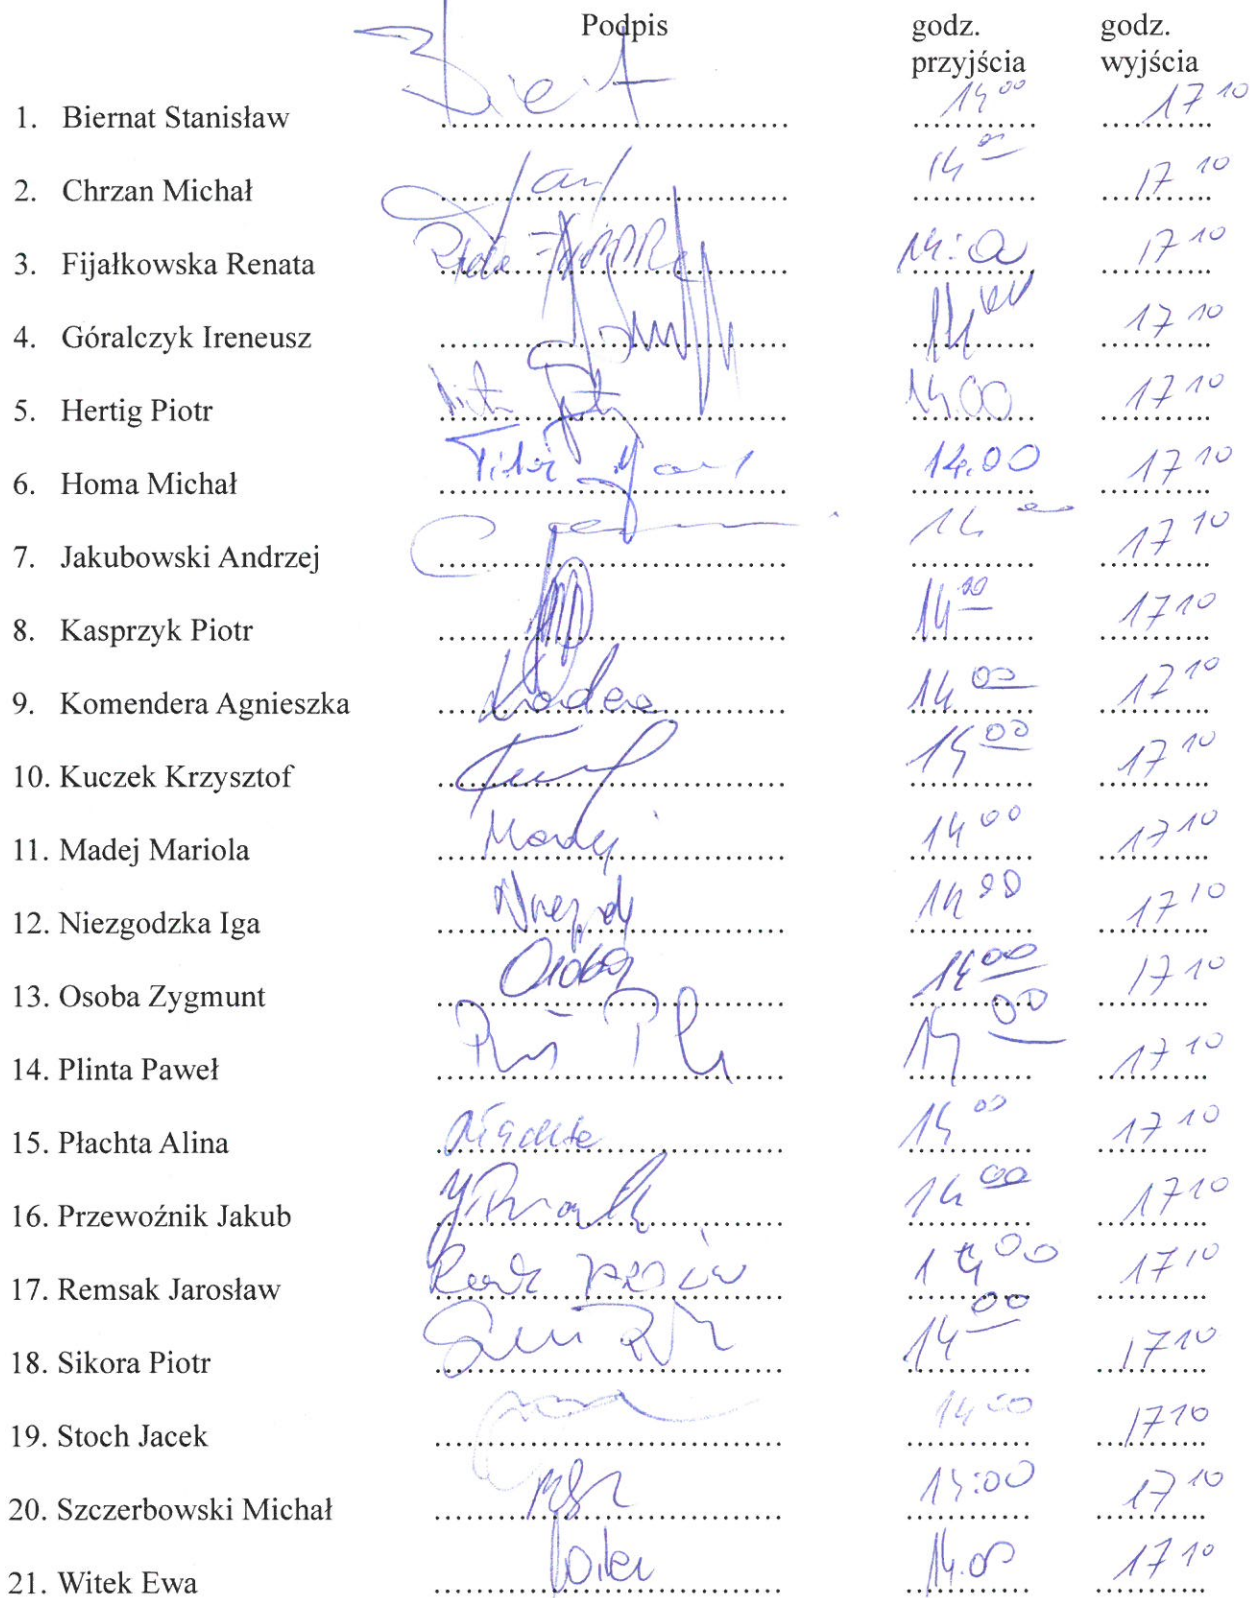 Podpis godz. godz.
przyjścia wyjścia
1. Biernat Stanisław .................................. 14 00 17 10
2. Chrzan Michał .................................. 14 00 17 10
3. Fijałkowska Renata .................................. 14:00 17 10
4. Góralczyk Ireneusz .................................. 14 00 17 10
5. Hertig Piotr .................................. 14.00 17 10
6. Homa Michał .................................. 14.00 17 10
7. Jakubowski Andrzej .................................. 14 00 17 10
8. Kasprzyk Piotr .................................. 14 00 17 10
9. Komendera Agnieszka .................................. 14 00 17 10
10. Kuczek Krzysztof .................................. 14 00 17 10
11. Madej Mariola Madej 14 00 17 10
12. Niezgodzka Iga .................................. 14 00 17 10
13. Osoba Zygmunt Osoba 14 00 17 10
14. Plinta Paweł .................................. 14 00 17 10
15. Płachta Alina Płachta 14 00 17 10
16. Przewoźnik Jakub .................................. 14 00 17 10
17. Remsak Jarosław .................................. 14 00 17 10
18. Sikora Piotr .................................. 14 00 17 10
19. Stoch Jacek .................................. 14 00 17 10
20. Szczerbowski Michał .................................. 14:00 17 10
21. Witek Ewa Witek 14.00 17 10